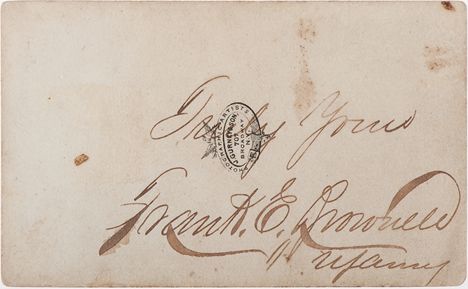 Truly Yours
PHOTOGRAPHIC ARTISTS
J. GURNEY & SON
707
BROADWAY
N.Y.
Frank. E. Brownell
US Army